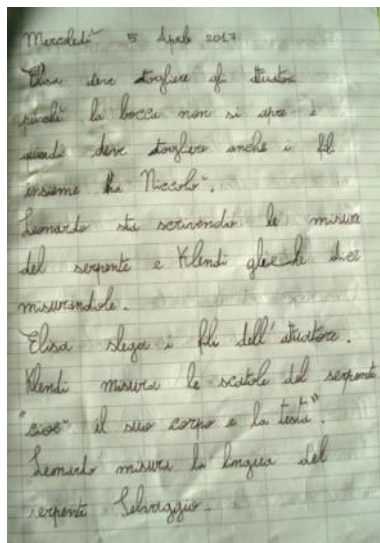 Mercoledì 5 Aprile 2017
Elisa deve togliere gli attuatori
perché la bocca non si apre e
quindi deve togliere anche i fili
insieme ha Niccolò.
Leonardo sta scrivendo le misure
del serpente e Klendi gliele dice
misurandole.
Elisa slega i fili dell'attuatore.
Klendi misura le scatole del serpente
"cioè" il suo corpo e la testa".
Leonardo misura la lingua del
serpente Selvaggio.